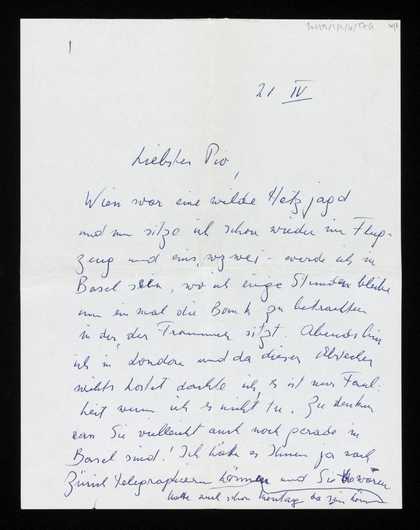 21 IV
Liebster Pio,
Wien war eine wilde Hetzjagd
und nun sitze ich schon wieder im Flug-
zeug und eins, zwei - werde ich in
Basel sein, wo ich einige Stunden bleibe
um einmal die Bank zu betrachten
in der, der Trammer sitzt. Abends bin
ich in London und da dieser
nichts kostet dachte ich, es ist nur Faul-
heit wenn ich es nicht tu. Zu denken
dass Sie vielleicht auch noch gerade in
Basel sind! Ich hätte es Ihnen ja nach
Zürich telegraphieren können und Sie wären